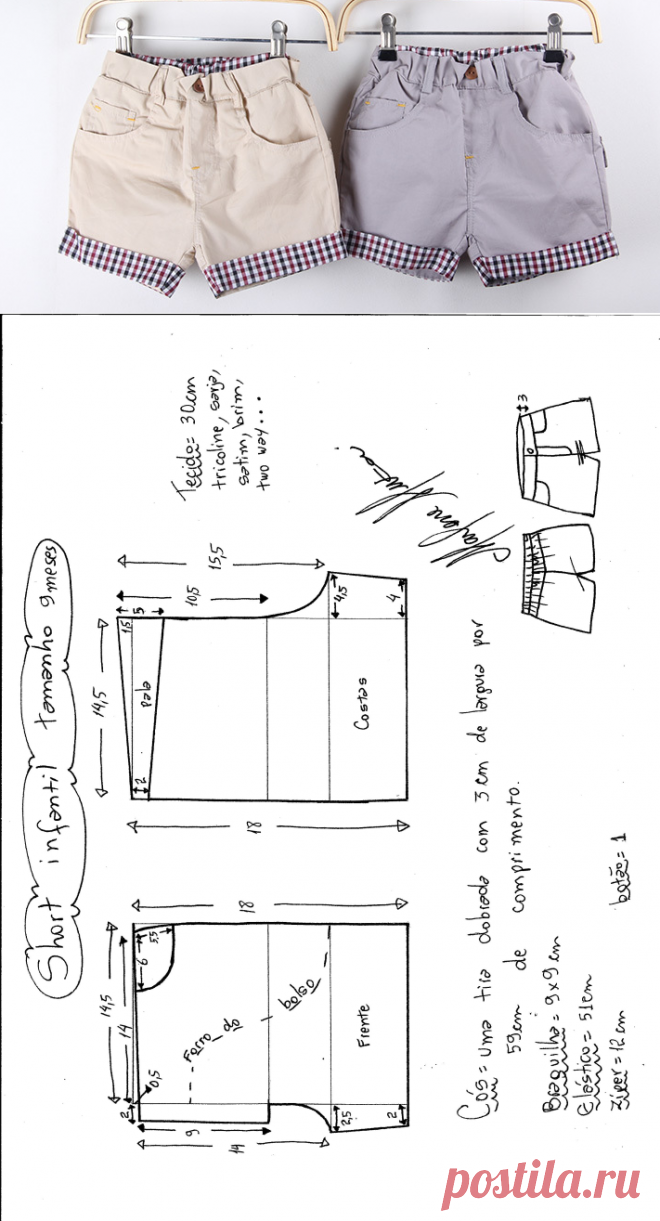 Short infantil tamanho 9 meses
Tecido= 30cm
tricoline, sarja,
satim, brim,
two way...
14,5
15,5
10,5
1,5
5
pala
2
4,5
4
Costas
18
18
14,5
14
5,5
6
Forro do bolso
0,5
2
9
14
2,5
2
Frente
3
Marlene Mukai
Cós= uma tira dobrada com 3 cm de largura por
59cm de comprimento.
Braguilha= 9x9 cm
Elástico= 51cm
Zíper= 12cm
botão= 1
postila.ru